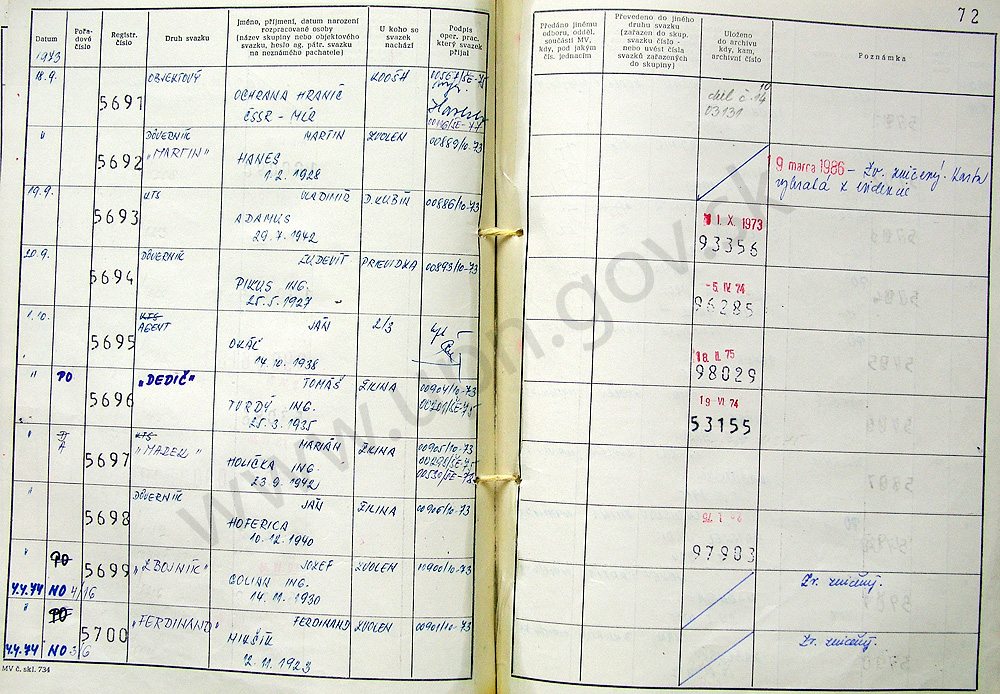 72
Datum
Pořadové číslo
Registr. číslo
Druh svazku
Jméno, příjmení, datum narození
rozpracované osoby
(název skupiny nebo objektového
svazku, heslo ag. pátr. svazku
na neznámého pachatele)
U koho se
svazek
nachází
Podpis
oper. prac.
který svazek
přijal
Předáno jinému
odboru, odděl.
součásti MV,
kdy, pod jakým
čís. jednacím
Převedeno do jiného
druhu svazku
(zařazen do skup.
svazku číslo -
nebo uvést čísla
svazků zařazených
do skupiny)
Uloženo
do archivu
kdy, kam,
archivní číslo
Poznámka
1973
18.9. 5691 OBJEKTOVÝ
OCHRANA HRANIC
ČSSR - MĽR
03131
" 5692 DÔVERNÍK MARTIN ZVOLEN 00889/10-73
„MARTIN"
HANES
1.2.1928
19 marca 1986 - Zv. zničený. Karta
vybratá z evidencie
19.9. 5693 KTS VLADIMÍR D.KUBÍN 00886/10-73
ADAMUS
29.7.1942
1. X. 1973
93356
20.9. 5694 DÔVERNÍK ĽUDEVÍT PRIEVIDZA 00893/10-73
PIKUS ING.
25.5.1927
-5. IV. 74
96285
1.10. 5695 KTS JÁN 2/3
AGENT
14.10.1938
18. II. 75
98029
" PO 5696 „DEDIČ" TOMÁŠ ŽILINA 00904/10-73
TVRDÝ ING.
25.3.1935
19 VI 74
53155
" A 5697 KTS MARIÁN ŽILINA 00905/10-73
HOLIČKA ING.
23.9.1942
" 5698 DÔVERNÍK JÁN ŽILINA 00906/10-73
HOFERICA
10.12.1940
97903
" PO 5699 „ZBOJNÍK" JOZEF ZVOLEN 00900/10-73
4.4.74 NO 4/16 GOLIAN ING.
14.11.1930
Zv. zničený.
" PO 5700 „FERDINAND" FERDINAND ZVOLEN 00901/10-73
4.4.74 NO 3/6 MIKŠÍK
12.11.1923
Zv. zničený.
MV č. skl. 734
www.upn.gov.sk